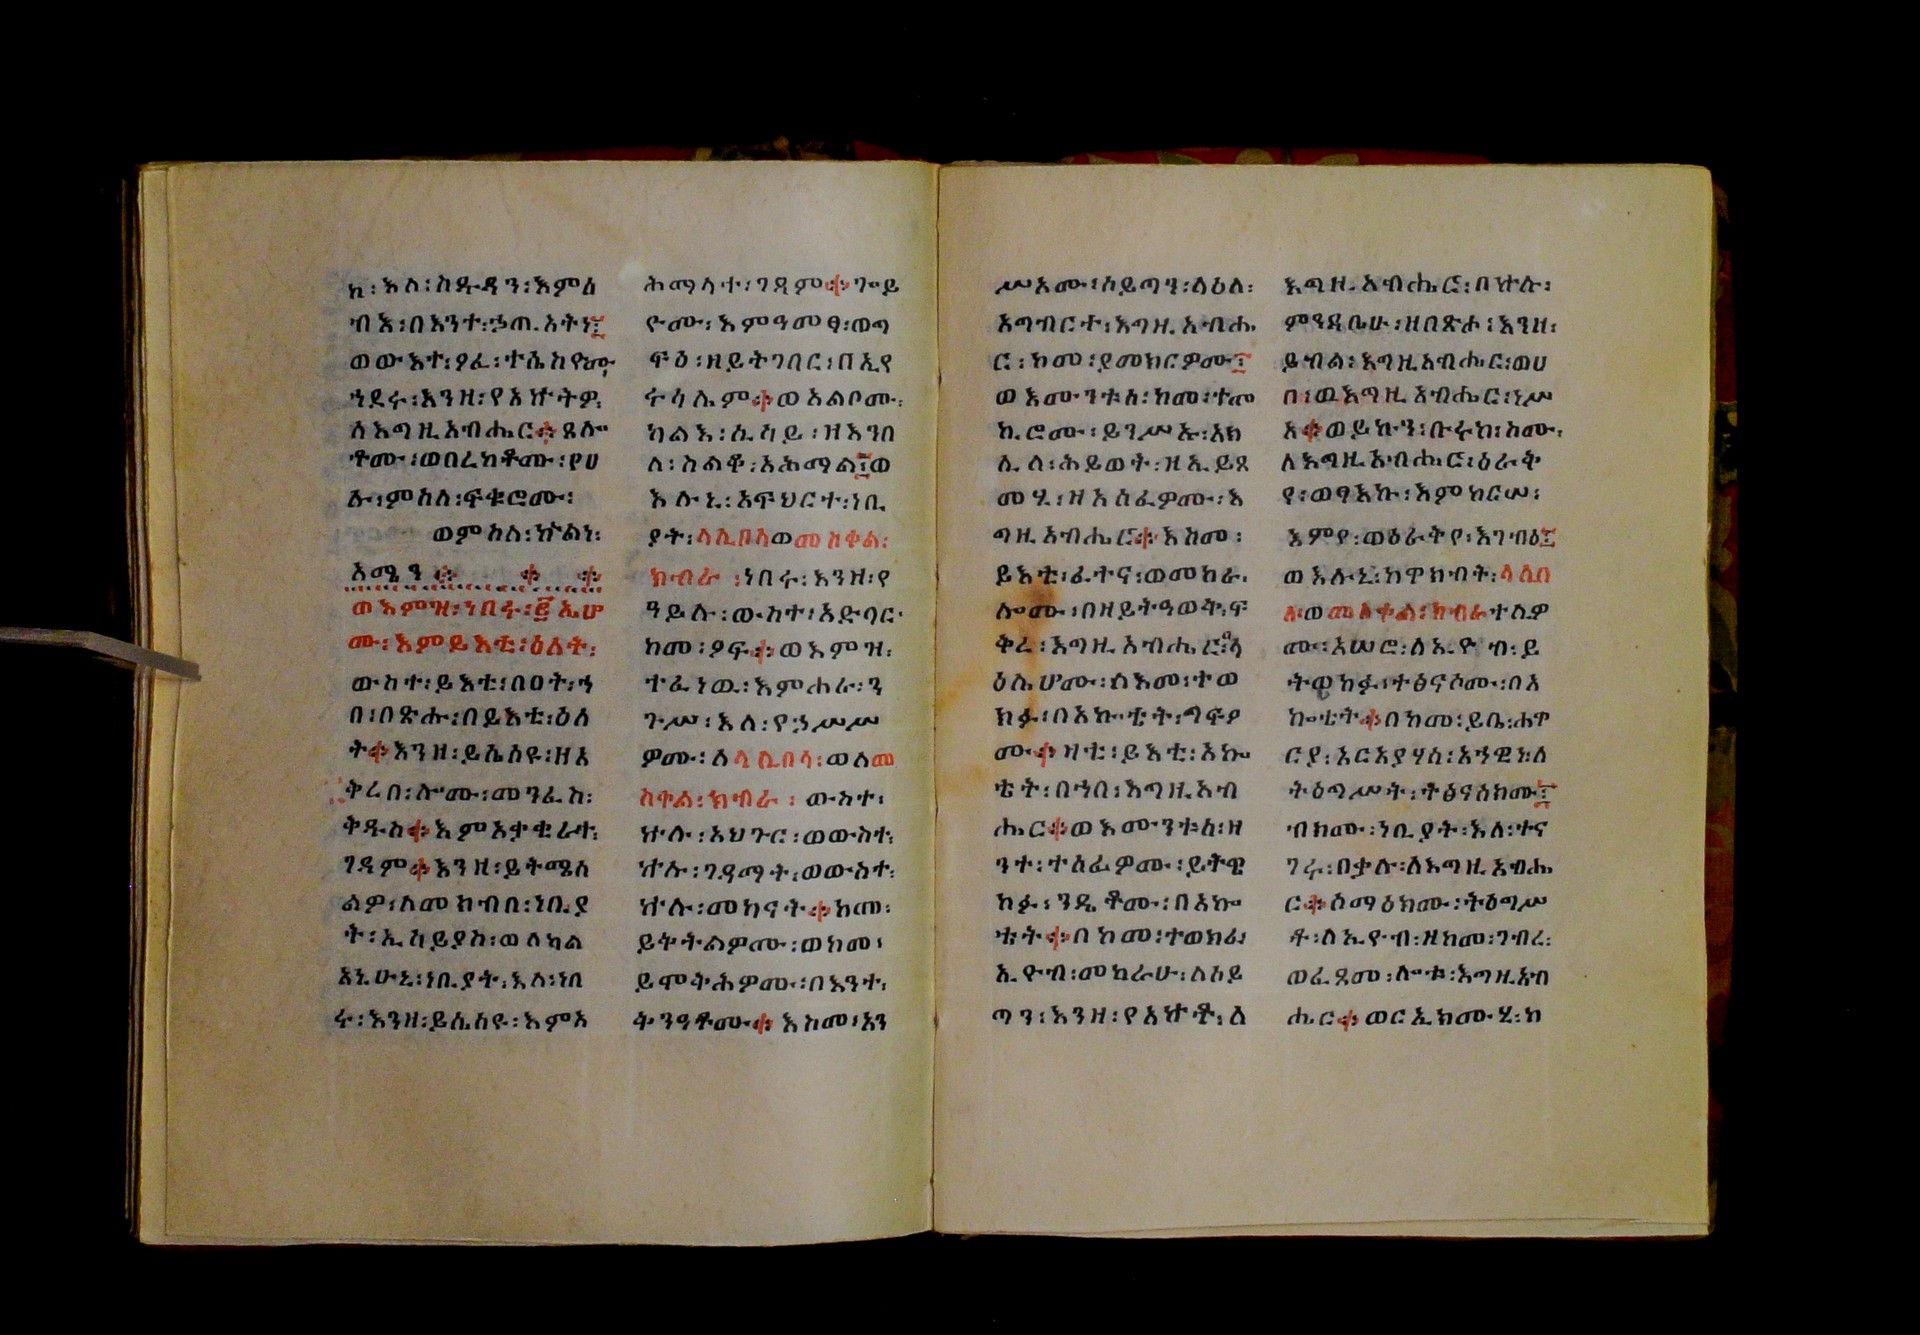 ኪ፡እስ፡ስዱዳን፡እምዕ
ብእ፡በእንተ፡ኃጢአትነ፤
ወውእተ፡ያፈ፡ተሴሰየሙ፡
ኀደሩ፡እንዘ፡የአኵትዎ፡
ለእግዚአብሔር።ጸሎ
ቶሙ፡ወበረከቶሙ፡የሀ
ሉ፡ምስለ፡ፍቁሮሙ፡
ወምስለ፡ኵልነ፡
አሜን ። ። ።
ወእምዝ፡ነበሩ፡፪ኤሆ
ሙ፡እምይእቲ፡ዕለት፡
ውስተ፡ይእቲ፡በዐት፡ኀ
በ፡በጽሑ፡በይእቲ፡ዕለ
ት።እንዘ፡ይሴሰዩ፡ዘአ
ቅረበ፡ሎሙ፡መንፈስ፡
ቅዱስ።እምአቃቂራተ፡
ገዳም።እንዘ፡ይትሜስ
ልዎ፡ለመክብበ፡ነቢያ
ት፡ኢሳይያስ፡ወለካል
አኒሁኒ፡ነቢያት፡እለ፡ነበ
ሩ፡እንዘ፡ይሲሰዩ፡እምአ
ሕማላተ፡ገዳም።ጐይ
ዮሙ፡እምዓመፃ፡ወጣ
ፍዕ፡ዘይትገበር፡በኢየ
ሩሳሌም።ወአልቦሙ፡
ካልእ፡ሲሳይ፡ዝእንበ
ለ፡ስልቆ፡አሕማል፤ወ
እሉኒ፡አፍህርተ፡ነቢ
ያት፡ላሊበላወመስቀል፡
ክብራ፡ነበሩ፡እንዘ፡የ
ዓይሉ፡ውስተ፡አድባር፡
ከመ፡ያፍ።ወእምዝ፡
ተፈነዉ፡እምሐራ፡ን
ጉሥ፡እለ፡የኃሥሥ
ዎሙ፡ለላሊበላ፡ወለመ
ስቀል፡ክብራ፡ውስተ፡
ኵሉ፡አህጉር፡ወውስተ፡
ኵሉ፡ገዳማት፡ወውስተ፡
ኵሉ፡መካናት።ከመ፡
ይቅትልዎሙ፡ወከመ፡
ይሞቅሕዎሙ፡በእንተ፡
ቅንዓቶሙ።እስመ፡አን
ሥአሙ፡ሰይጣን፡ለዕለ፡
አግብርተ፡እግዚአብሔ
ር፡ከመ፡ያመክርዎሙ፤
ወእሙንቱሰ፡ከመ፡ተመ
ኪሮሙ፡ይንሥኡ፡አክ
ሊለ፡ሕይወት፡ዘኢይጸ
መሂ፡ዘአስፈዎሙ፡እ
ግዚአብሔር።እስመ፡
ይእቲ፡ፈተና፡ወመከራ፡
ሎሙ፡በዘይትዓወቅ፡ፍ
ቅረ፡እግዚአብሔር፡ላ
ዕሌሆሙ፡ሰእመ፡ተወ
ክፉ፡በአኰቲት፡ግፍዖ
ሙ።ዛቲ፡ይእቲ፡አኰ
ቴት፡በኀበ፡እግዚአብ
ሔር።ወእሙንቱሰ፡ዘ
ንተ፡ተሰፊዎሙ፡ይትዌ
ከፉ፡ንዴቶሙ፡በአኰ
ቴት።በከመ፡ተወክፈ፡
ኢዮብ፡መከራሁ፡ለሰይ
ጣን፡እንዘ፡የአኵቶ፡ለ
እግዚአብሔር፡በኵሉ፡
ምንዳቤሁ፡ዘበጽሖ፡እንዘ፡
ይብል፡እግዚአብሔር፡ወሀ
በ፡ወእግዚአብሔር፡ነሥ
አ።ወይኩን፡ቡሩከ፡ስሙ፡
ለእግዚአብሔር፡ዕራቅ
የ፡ወፃእኩ፡እምከርሠ፡
እምየ፡ወዕራቅየ፡እገብዕ፤
ወእሉኒ፡ከዋክብት፡ላሊበ
ላ፡ወመስቀል፡ክብራተለዎ
ሙ፡አሠሮ፡ለኢዮብ፡ይ
ትወከፉ፡ተፅናሶሙ፡በአ
ኰቴት።በከመ፡ይቤ፡ሐዋ
ርያ፡አርአያሃሰ፡አኀዊነ፡ለ
ትዕግሥት፡ትፅናስክሙ፤
ብክሙ፡ነቢያት፡እለ፡ተና
ገሩ፡በቃሉ፡ለእግዚአብሔ
ር።ሰማዕክሙ፡ትዕግሥ
ቶ፡ለኢዮብ፡ዘከመ፡ገብረ፡
ወፈጸመ፡ሎቱ፡እግዚአብ
ሔር።ወርኢክሙሂ፡ከ